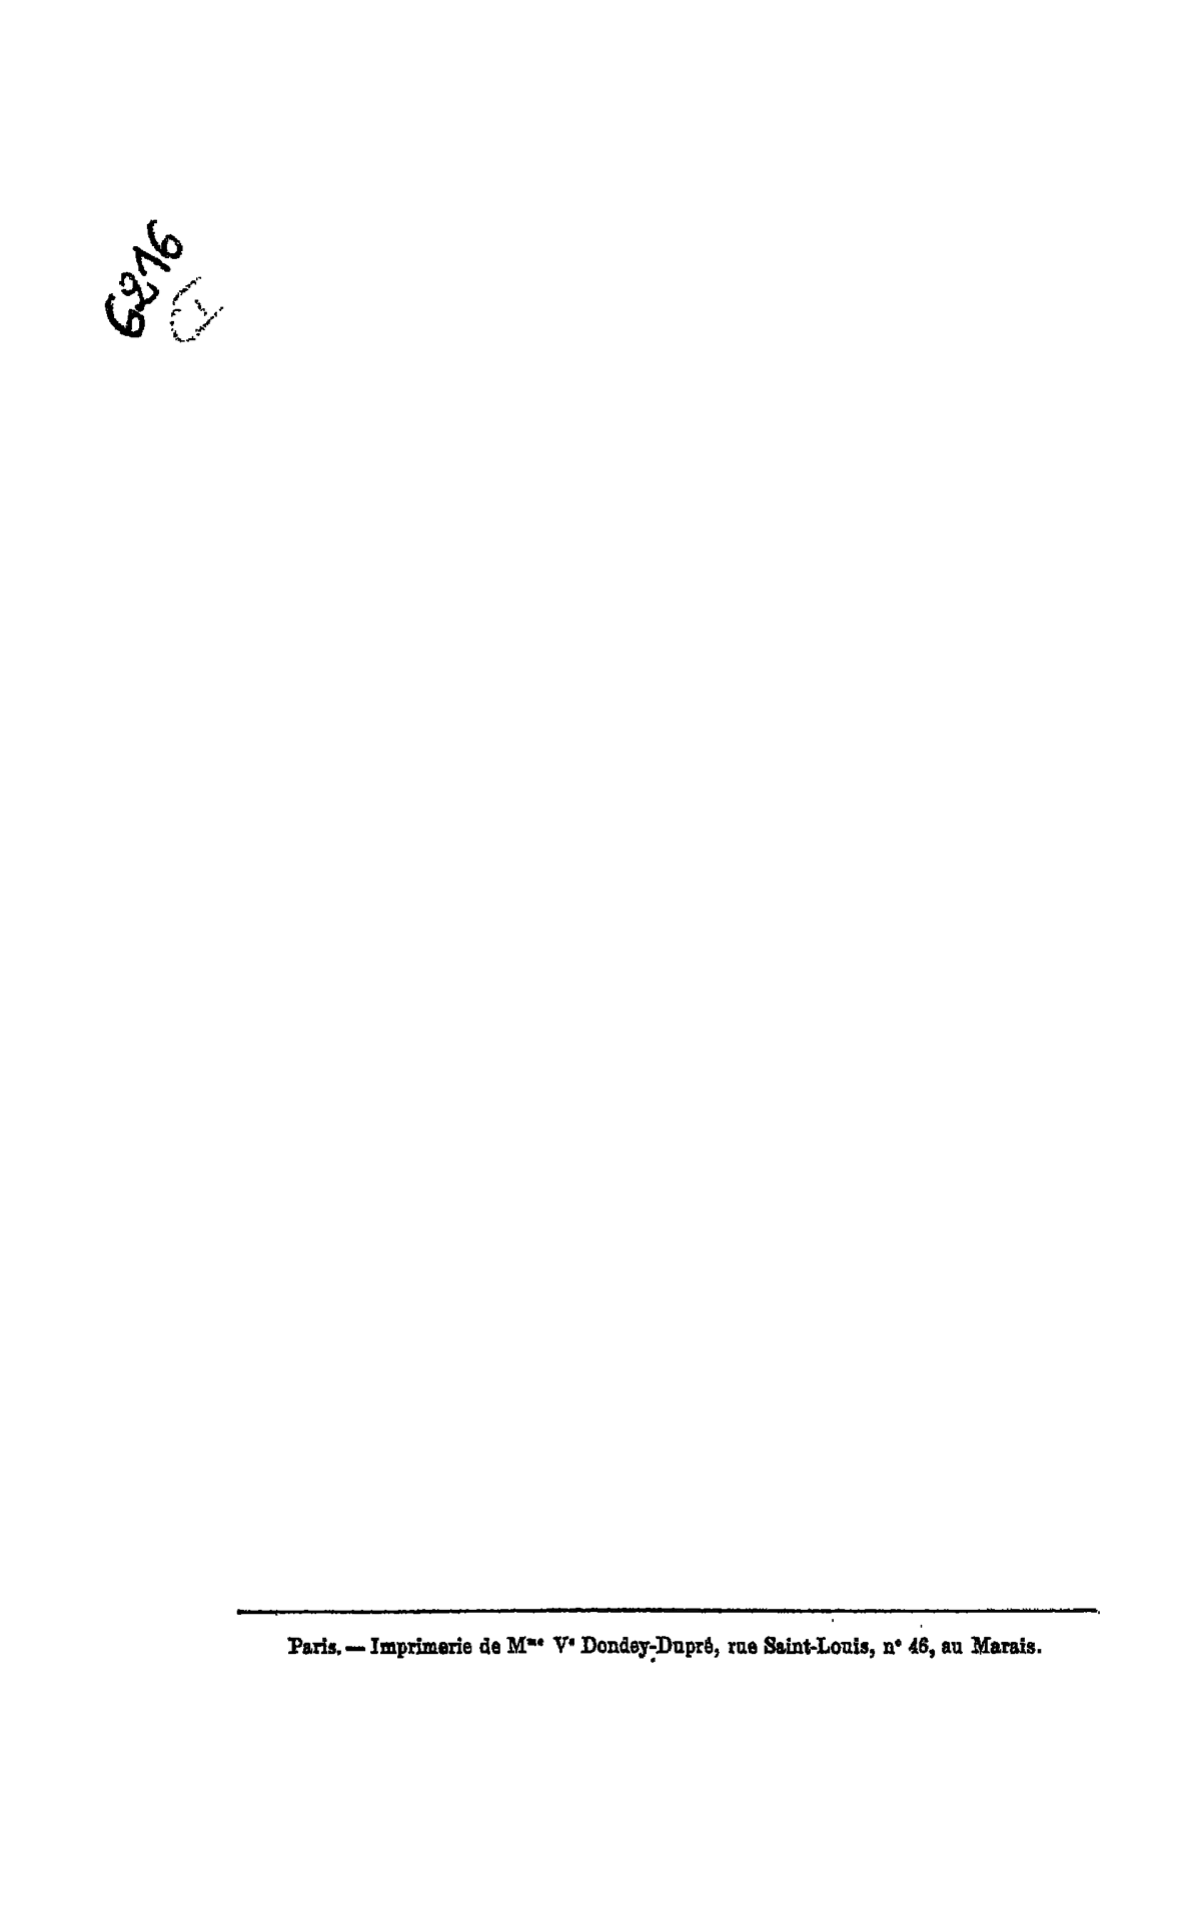 6216
Paris. — Imprimerie de Mᵐᵉ Vᵉ Dondey-Dupré, rue Saint-Louis, nº 46, au Marais.